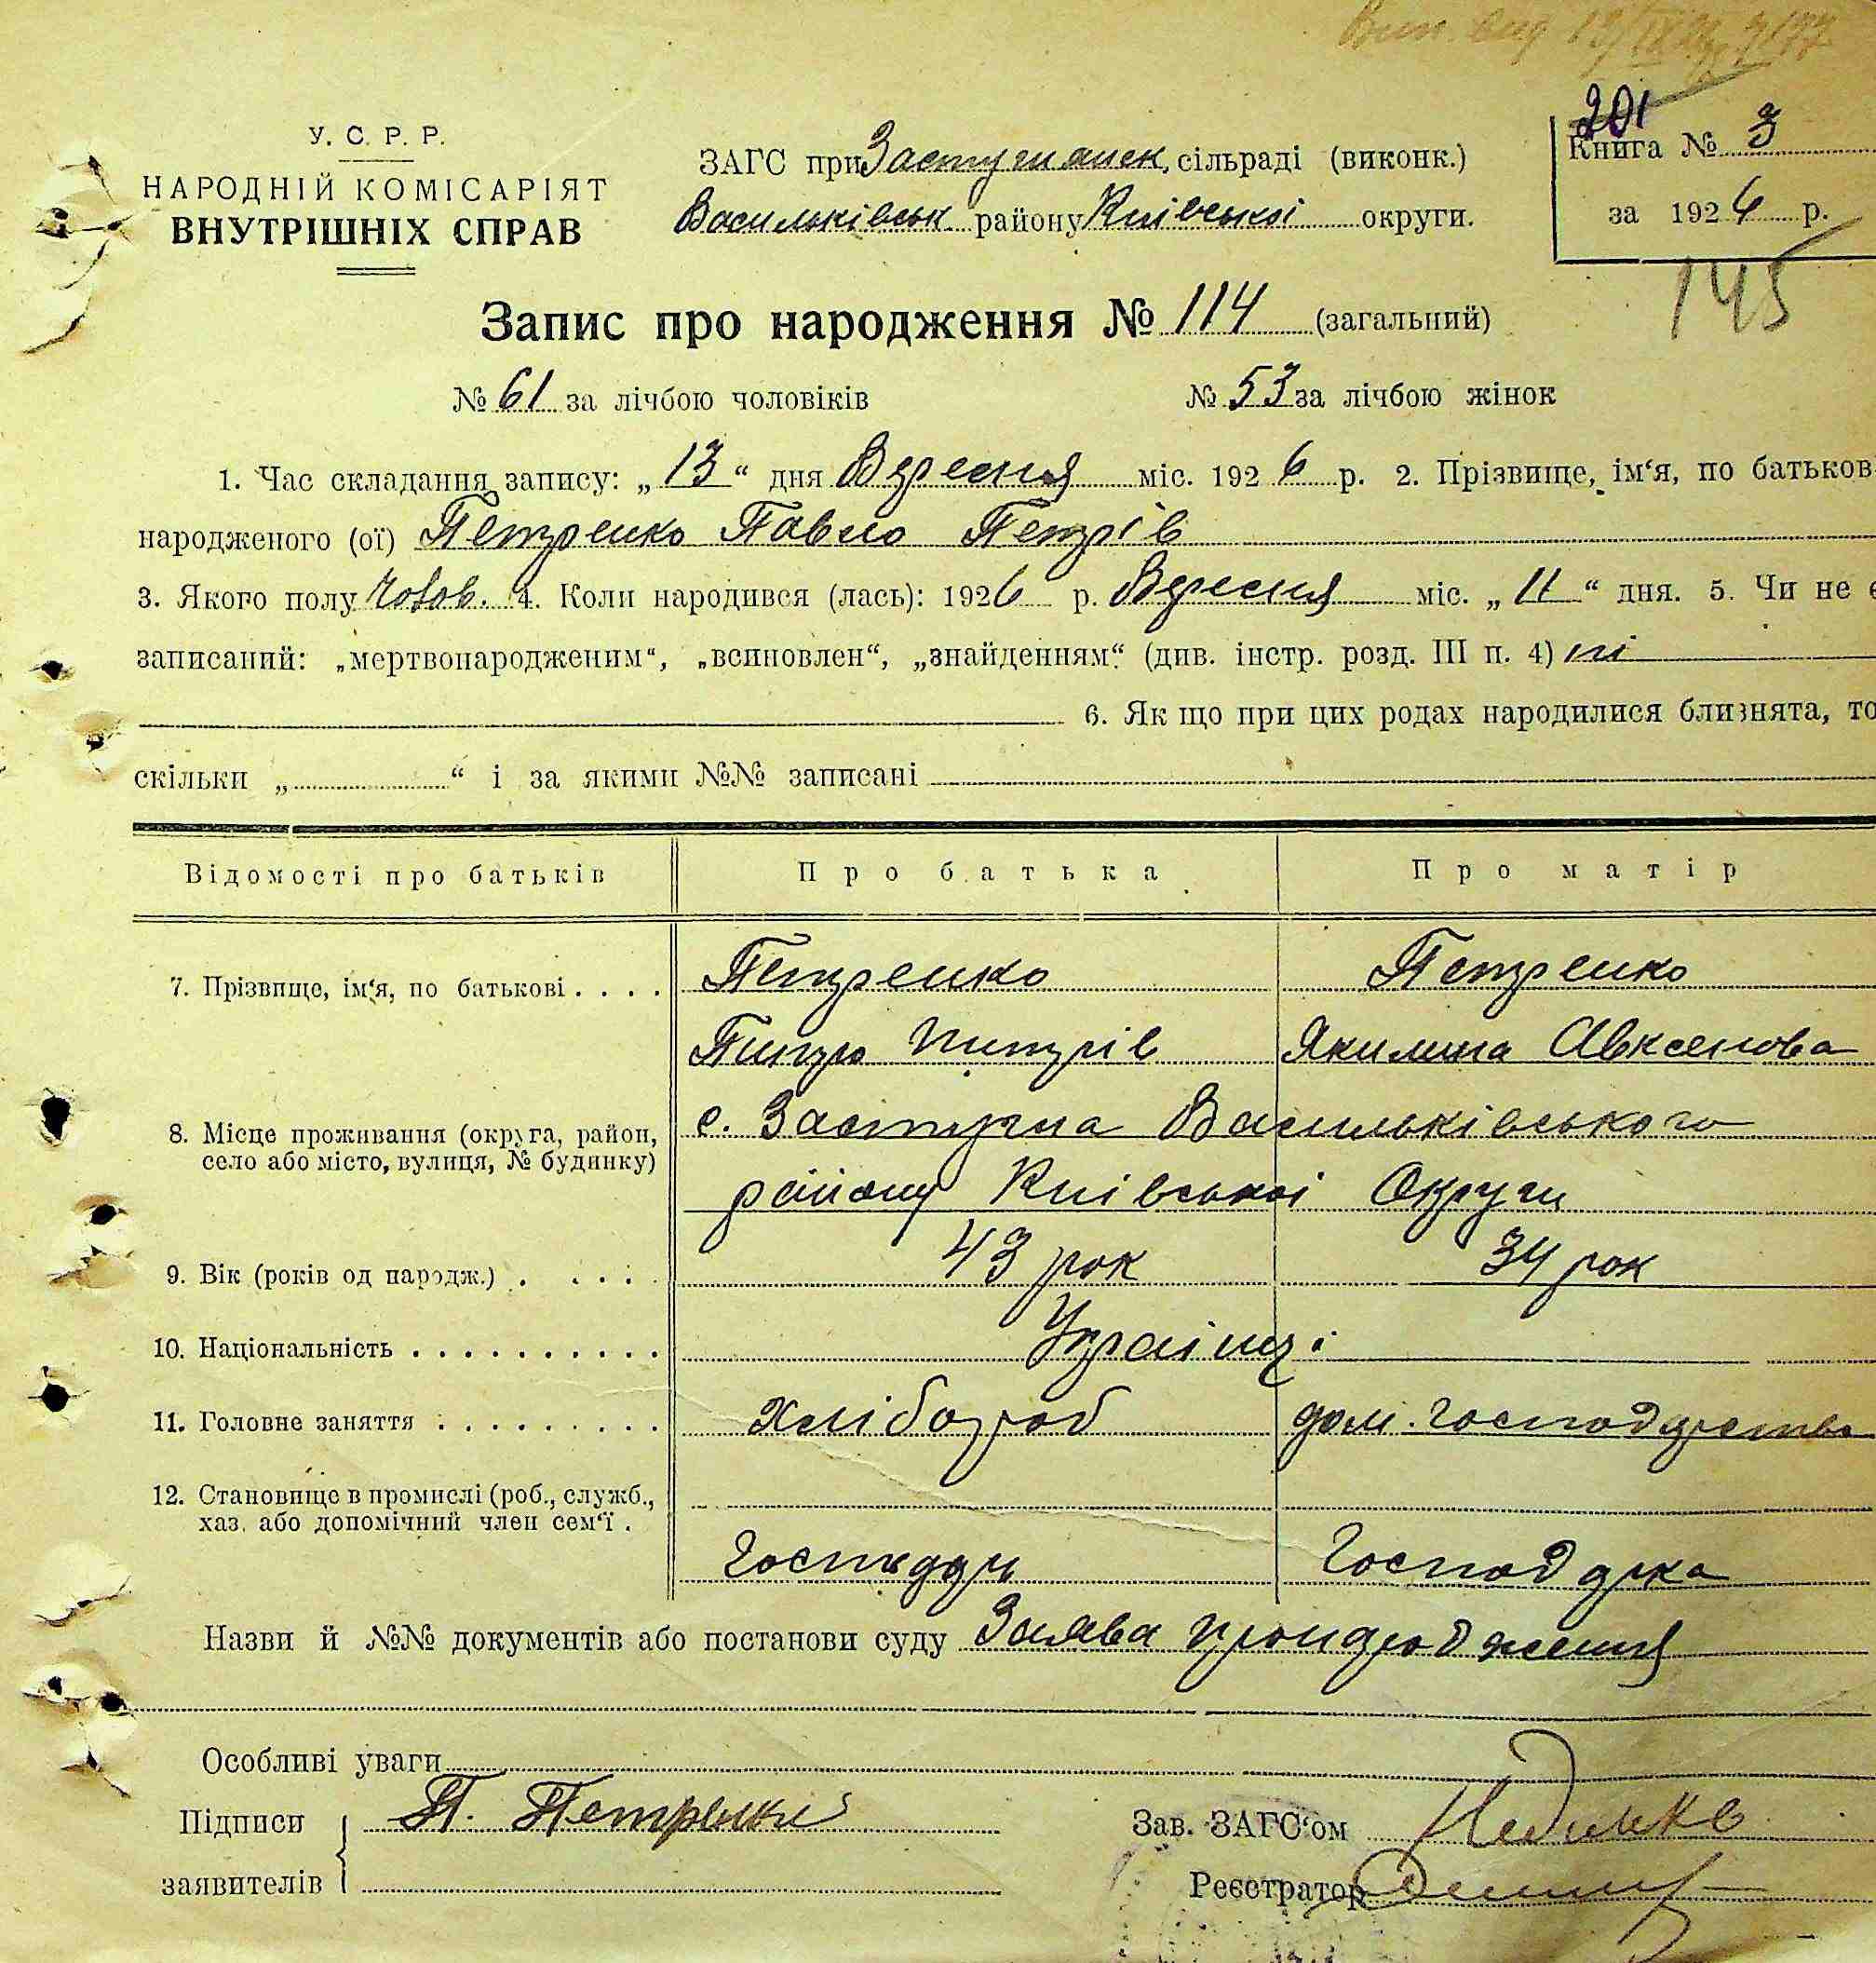 201
У. С. Р. Р.
НАРОДНІЙ КОМІСАРІЯТ
ВНУТРІШНІХ СПРАВ
ЗАГС при Застугнянск. сільраді (виконк.)
Васильківськ. району Київської округи.
Книга № 3
за 1926 р.
145
Запис про народження № 114 (загальний)
№ 61 за лічбою чоловіків № 53 за лічбою жінок
1. Час складання запису: „13“ дня Вересня міс. 1926 р. 2. Прізвище, ім‘я, по батьков
народженого (ої) Петренко Павло Петрів
3. Якого полу Чолов. 4. Коли народився (лась): 1926 р. Вересня міс. „11“ дня. 5. Чи не є
записаний: „мертвонародженим“, „всиновлен“, „знайденням“ (див. інстр. розд. III п. 4) ні
6. Як що при цих родах народилися близнята, то
скільки „ “ і за якими №№ записані
Відомості про батьків Про батька Про матір
7. Прізвище, ім‘я, по батькові . . . . Петренко Петренко
Питро Питрів Якилина Авксенова
8. Місце проживання (округа, район, с. Застугна Васильківського
село або місто, вулиця, № будинку) району Київської Округи
9. Вік (років од народж.) . . . . . 43 рок 34 рок
10. Національність . . . . . . . . . . Українці
11. Головне заняття . . . . . . . . . хлібороб дом. господарство
12. Становище в промислі (роб., служб.,
хаз. або допомічний член сем‘ї .
Господар Господарка
Назви й №№ документів або постанови суду Заява
Особливі уваги
Підписи П. Петренко Зав. ЗАГС‘ом
заявителів Реєстратор